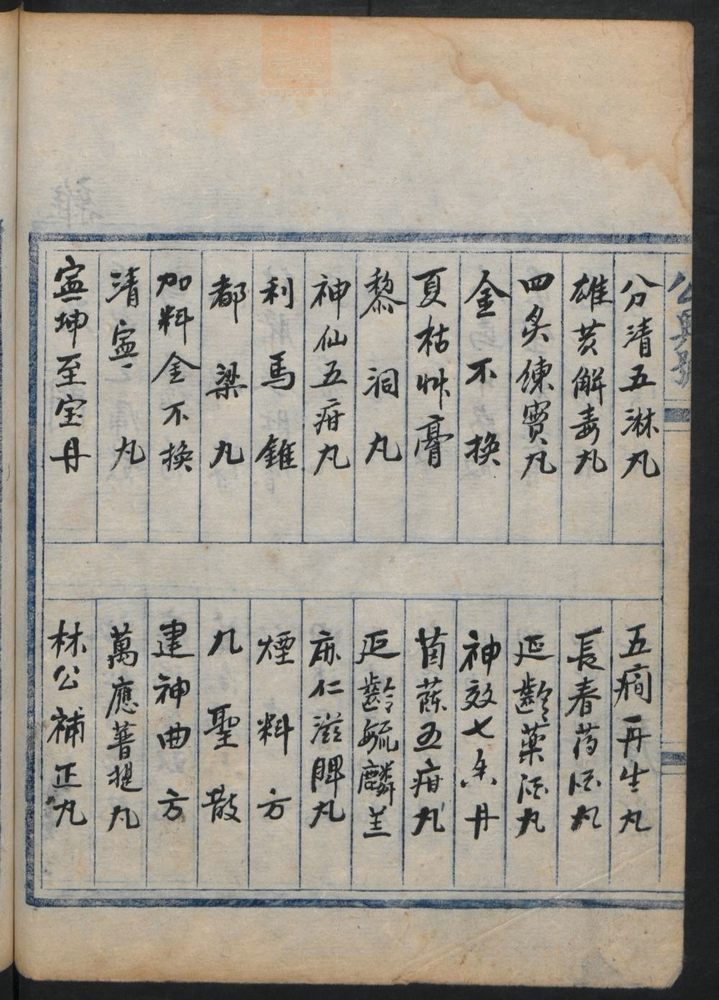 公興號
分清五淋丸
雄黄解毒丸
四炙練實丸
金不换
夏枯艸膏
黎洞丸
神仙五疳丸
利馬錐
都梁丸
加料金不换
清寍丸
寍坤至宝丹
五癎再生丸
長春药酒丸
延齡藥酒丸
神效七香丹
茵蔯五疳丸
延齡毓麟
麻仁滋脾丸
煙料方
九聖散
建神曲方
萬應菩提丸
林公補正丸